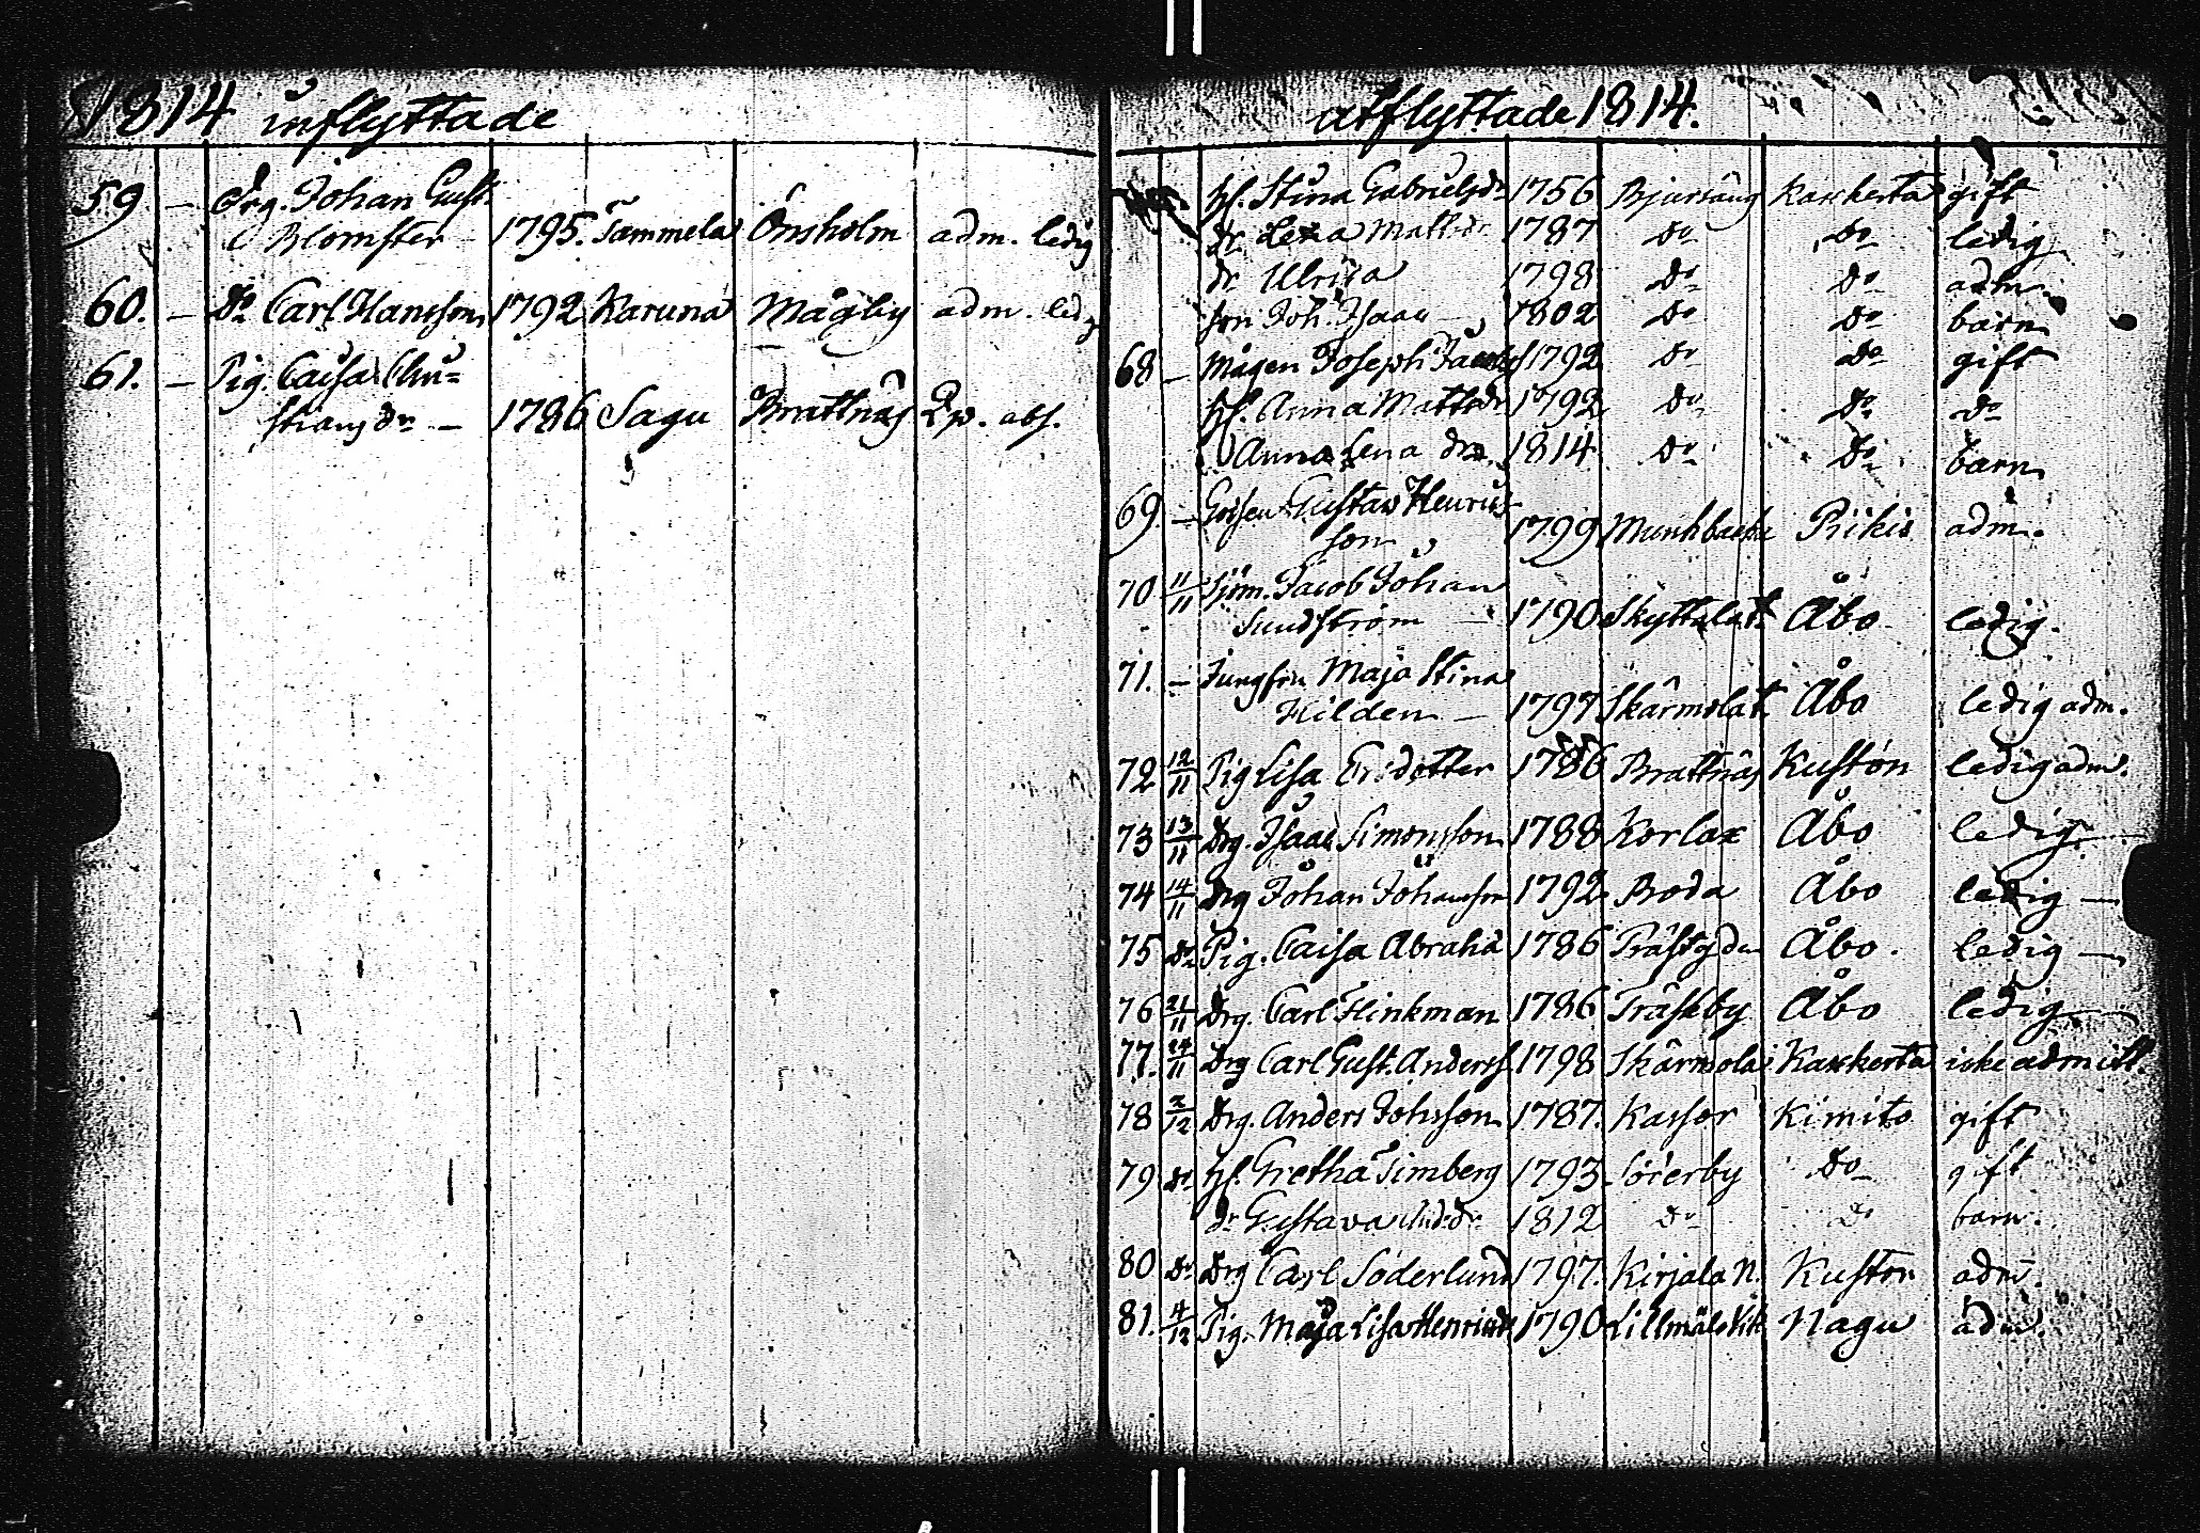 1814 inflyttade
59 – Drg. Johan Gust.
Blomster – 1795. Tammela Önsholm adm. ledig
60. – Do Carl Hansson 1792 Karuna Mågby adm. led
61. – Pig. Caisa Chri=
stians dr – 1786 Sagu Brattnäs Qv. abs.
utflyttade 1814.
h. Stina Gabrielsdr 1756 Bjursäng Kaxkerta gift
dr. Lena Mattsdr. 1787 Do Do ledig
dr. Ulrica 1798 Do Do adm.
son Joh. Isaac – 1802 Do Do barn
68 – mågen Joseph 1792 Do Do gift
h. Anna Mattsdr 1792 Do Do Do
Anna Lena dr. 1814 Do Do barn
69. – Gossen Gustav Henrics
son 1799 Munkbacka Piikis adm.
70 11/11 Sjöm. Jacob Johan
Sundström – 1790 Skyttala Åbo ledig.
71. – Jungfru Maja Stina
Hilden – 1797 Skärmola Åbo ledig adm.
72 12/11 Pig Lisa Ersdotter 1786 Brattnäs Kustön ledig adm.
73 13/11 Drg. Isaac Simonsson 1788 Korlax Åbo ledig –
74 14/11 Drg Johan Johansson 1792 Broda Åbo ledig –
75 Do Pig. Caisa Abrahā 1786 Åbo. ledig –
76 21/11 Drg. Carl Flinkman 1786 Träskby Åbo ledig –
77. 24/11 Drg Carl Gust. Anderss. 1798 Skärmola Kaxkerta icke admitt.
78 2/12 Drg. Anders Johsson 1787. Kassor Kimito gift
79 Do h. Gretha Simberg 1793 Sörerby Do gift
dr Gustava 1812 Do Do barn.
80 Do Drg Carl Söderlund 1797. Kirjala N. Kustön adm.
81. 4/12 Pig. Maja Lisa Henricdr 1790 Lillmälö Nagu adm.